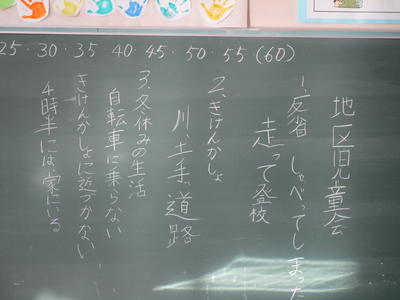 25・30・35・40・45・50・55(60)
地区児童会
1、反省 しゃべってしまった
走って登校
2、きけんかしょ
川、土手、道路
3、冬休みの生活
自転車に乗らない
きけんかしょに近づかない
4時半には、家にいる